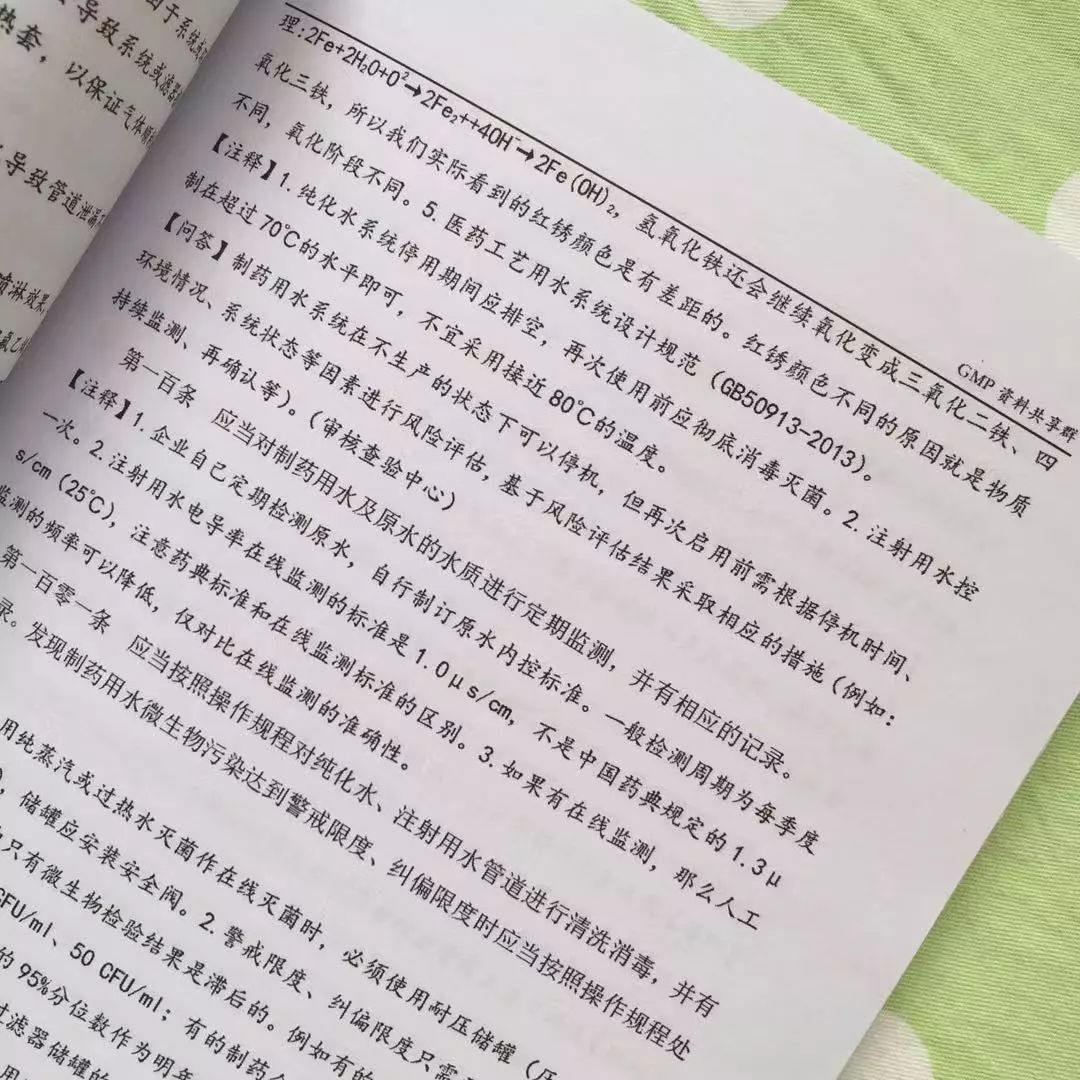 因子系统或
导致系统或滤器
热套，以保证气体顺
导致管道泄漏
喷淋效果
氟乙
GMP 资料共享群
理：2Fe+2H₂O+O²→2Fe₂++4OH⁻→2Fe(OH)₂，氢氧化铁还会继续氧化变成三氧化二铁、四
氧化三铁，所以我们实际看到的红锈颜色是有差距的。红锈颜色不同的原因就是物质
不同，氧化阶段不同。5.医药工艺用水系统设计规范（GB50913-2013）。
【注释】1.纯化水系统停用期间应排空，再次使用前应彻底消毒灭菌。2.注射用水控
制在超过70℃的水平即可，不宜采用接近80℃的温度。
【问答】制药用水系统在不生产的状态下可以停机，但再次启用前需根据停机时间、
环境情况、系统状态等因素进行风险评估，基于风险评估结果采取相应的措施（例如：
持续监测、再确认等）。（审核查验中心）
第一百条 应当对制药用水及原水的水质进行定期监测，并有相应的记录。
【注释】1.企业自己定期检测原水，自行制订原水内控标准。一般检测周期为每季度
一次。2.注射用水电导率在线监测的标准是1.0μs/cm，不是中国药典规定的1.3μ
s/cm（25℃），注意药典标准和在线监测标准的区别。3.如果有在线监测，那么人工
监测的频率可以降低，仅对比在线监测的准确性。
第一百零一条 应当按照操作规程对纯化水、注射用水管道进行清洗消毒，并有
录。发现制药用水微生物污染达到警戒限度、纠偏限度时应当按照操作规程处
用纯蒸汽或过热水灭菌作在线灭菌时，必须使用耐压储罐（压
，储罐应安装安全阀。2.警戒限度、纠偏限度只需
只有微生物检验结果是滞后的。例如有的
CFU/ml、50 CFU/ml；有的制药企
的95%分位数作为明年
过滤器储罐的